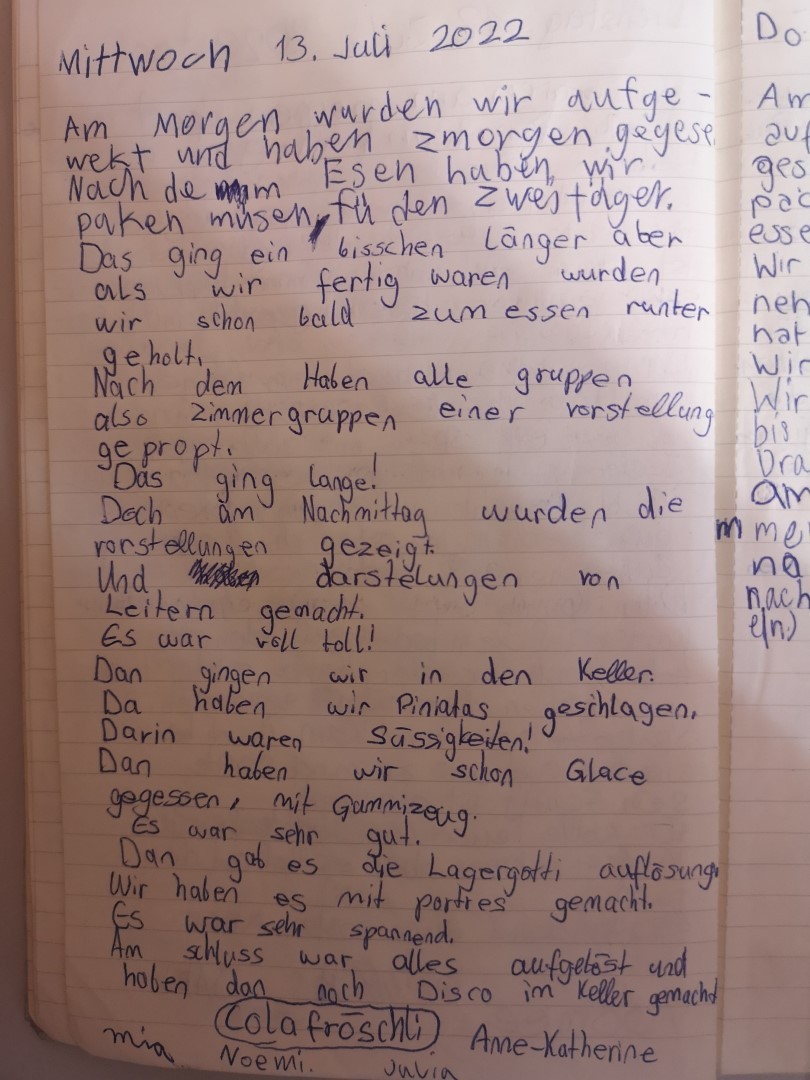 Mittwoch 13. Juli 2022
Am Morgen wurden wir aufge-
wekt und haben zmorgen gegese
Nach dem Esen haben wir
paken müsen, fü den zweitäger.
Das ging ein bisschen Länger aber
als wir fertig waren wurden
wir schon bald zum essen runter
geholt.
Nach dem Haben alle gruppen
also Zimmergruppen einer vorstellung
gepropt.
Das ging lange!
Doch am Nachmittag wurden die
vorstellungen gezeigt.
Und darstelungen von
Leitern gemacht.
Es war voll toll!
Dan gingen wir in den Keller.
Da haben wir Piniatas geschlagen.
Darin waren Süssigkeiten!
Dan haben wir schon Glace
gegessen, mit Gummizeug.
Es war sehr gut.
Dan gab es die Lagergotti auflösung
Wir haben es mit portres gemacht.
Es war sehr spannend.
Am schluss war alles aufgelöst und
haben dan noch Disco im Keller gemacht
Colafröschli
mia Noemi. Julia Ame-Katherine
Do
Am
auf
ges
pac
esse
Wir
neh
hat
Wir
Wir
bis
Dra
am
m me
na
nach
e(n)